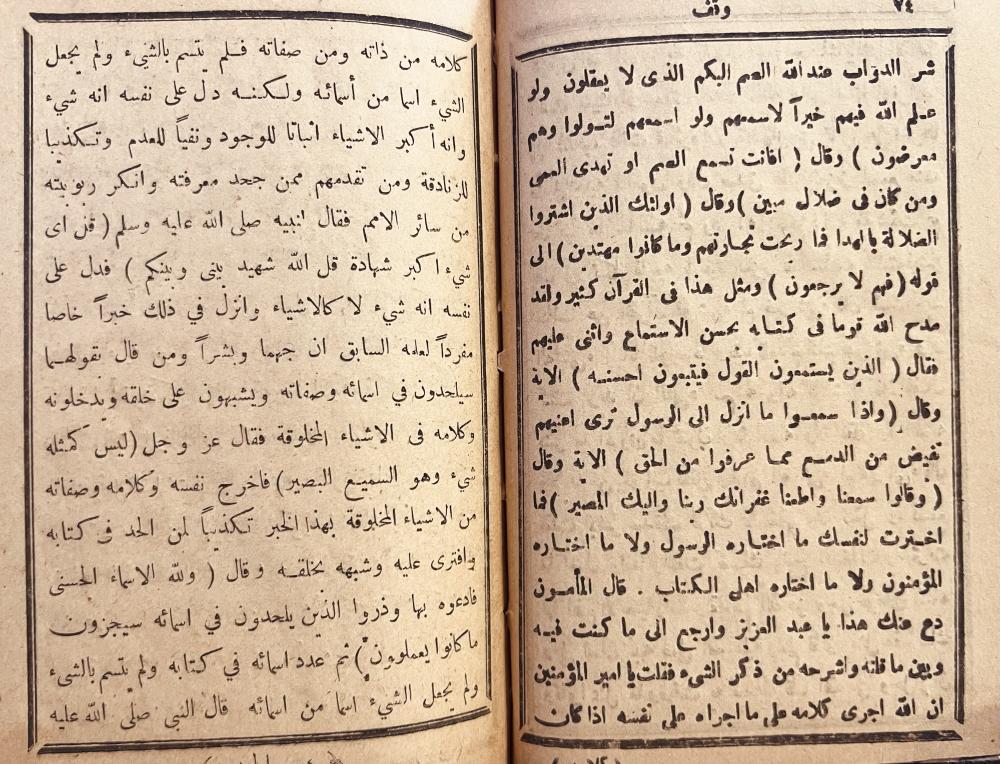 ٧٤
وقف
شر الدواب عند الله الصم البكم الذى لا يعقلون ولو
علم الله فيهم خيراً لاسمعهم ولو اسمعهم لتولوا وهم
معرضون ) وقال ( افانت تسمع الصم او تهدى العمى
ومن كان فى ضلال مبين )وقال ( اولئك الذين اشتروا
الضلالة بالهدا فما ربحت تجارتهم وما كانوا مهتدين) الى
قوله ( فهم لا يرجعون ) ومثل هذا فى القرآن كثير ولقد
مدح الله قوما فى كتابه بحسن الاستماع واثنى عليهم
فقال ( الذين يستمعون القول فيتبعون احسنه ) الاية
وقال (واذا سمعوا ما انزل الى الرسول ترى اعينهم
تفيض من الدمع مما عرفوا من الحق ) الاية وقال
( وقالوا سمعنا واطعنا غفرانك ربنا واليك المصير )فما
اخترت لنفسك ما اختاره الرسول ولا ما اختاره
المؤمنون ولا ما اختاره اهل الكتاب . قال المأمون
دع عنك هذا يا عبد العزيز وارجع الى ما كنت فيه
وبين ما قلته واشرحه من ذكر الشىء فقلت يا امير المؤمنين
ان الله اجرى كلامه على ما اجراه على نفسه اذا كان
كلامه من ذاته ومن صفاته فلم يتسم بالشيء ولم يجعل
الشيء اسما من أسمائه ولكنه دل على نفسه انه شيء
وانه أكبر الاشياء اثباتا للوجود ونفياً للعدم وتكذيبا
للزنادقة ومن تقدمهم ممن جحد معرفته وانكر ربوبيته
من سائر الامم فقال لنبيه صلى الله عليه وسلم ( قل اى
شيء اكبر شهادة قل الله شهيد بينى وبينكم ) فدل على
نفسه انه شيء لا كالاشياء وانزل في ذلك خبراً خاصا
مفرداً لعلمه السابق ان جهما وبشراً ومن قال بقولهما
سيلحدون في اسمائه وصفاته ويشبهون على خلقه ويدخلونه
وكلامه فى الاشياء المخلوقة فقال عز وجل (ليس كمثله
شيء وهو السميع البصير) فاخرج نفسه وكلامه وصفاته
من الاشياء المخلوقة بهذا الخبر تكذيباً لمن الحد في كتابه
وافترى عليه وشبهه بخلقه وقال ( ولله الاسماء الحسنى
فادعوه بها وذروا الذين يلحدون في اسمائه سيجزون
ما كانوا يعملوون ) ثم عدد اسمائه في كتابه ولم يتسم بالشيء
ولم يجعل الشيء اسما من اسمائه قال النبي صلى الله عليه